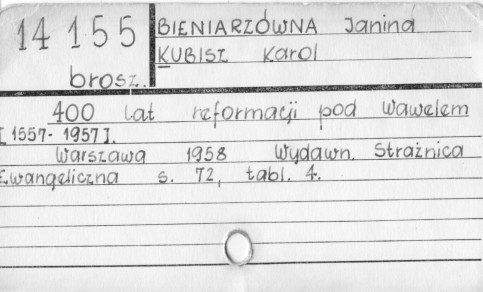 14 155
brosz.
BIENIARZÓWNA Janina
KUBISZ Karol
400 lat reformacji pod Wawelem
[1557-1957].
Warszawa 1958 Wydawn. Strażnica
Ewangeliczna s. 72, tabl. 4.